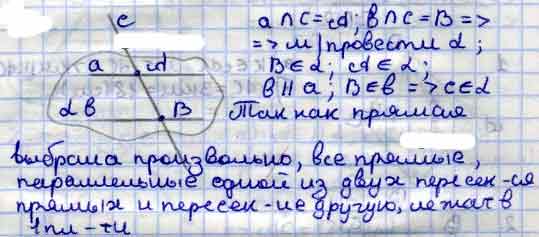 c
a A
α b B
a ∩ c = A; b ∩ c = B =>
=> м/провести α;
B ∈ α; A ∈ α;
b || a; B ∈ b => c ∈ α
Так как прямая
выбрана произвольно, все прямые,
параллельные одной из двух пересек-ся
прямых и пересек-ие другую, лежат в
1 пл-ти